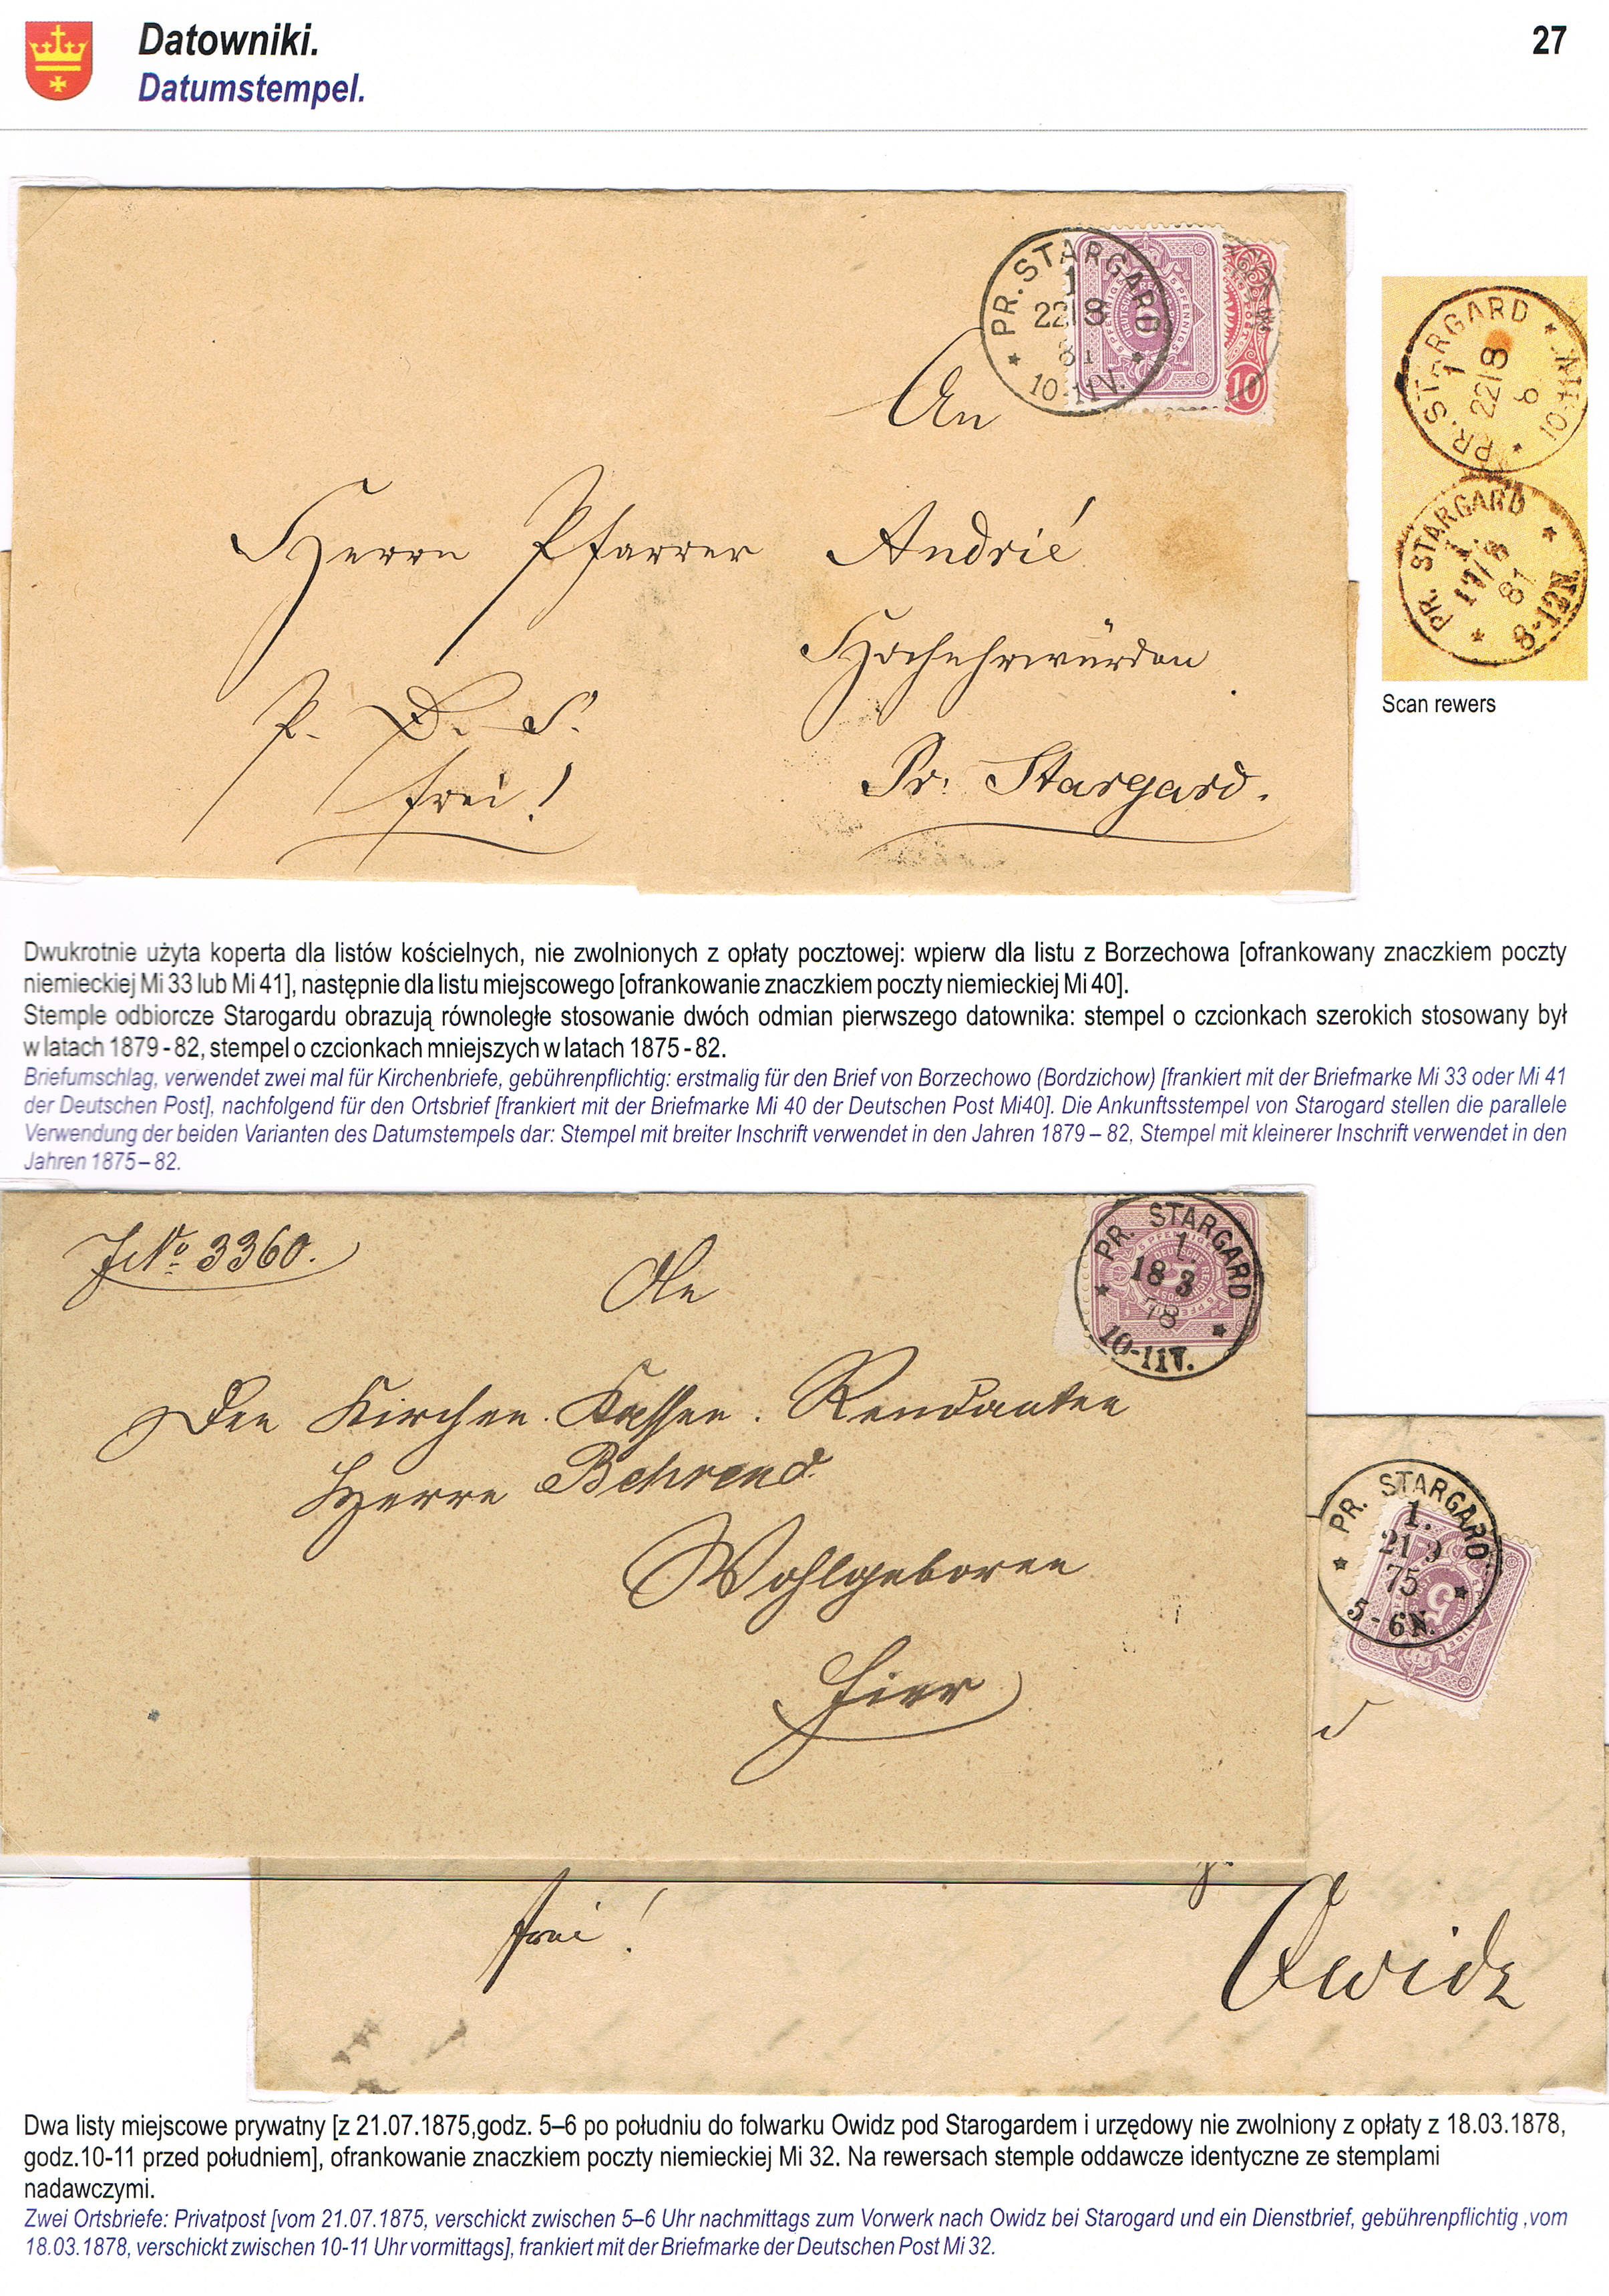 Datowniki.
27
Datumstempel.
PR. STARGARD
1
22/8
81
10-11V.
10
An
Herrn Pfarrer Andrié
Hochehrwürden
P. D. S.
frei!
Pr. Stargard.
PR. STARGARD
1
22/8
8
10-11V
PR. STARGARD
1.
17/8
81
8-12N.
Scan rewers
Dwukrotnie użyta koperta dla listów kościelnych, nie zwolnionych z opłaty pocztowej: wpierw dla listu z Borzechowa [ofrankowany znaczkiem poczty
niemieckiej Mi 33 lub Mi 41], następnie dla listu miejscowego [ofrankowanie znaczkiem poczty niemieckiej Mi 40].
Stemple odbiorcze Starogardu obrazują równoległe stosowanie dwóch odmian pierwszego datownika: stempel o czcionkach szerokich stosowany był
w latach 1879 - 82, stempel o czcionkach mniejszych w latach 1875 - 82.
Briefumschlag, verwendet zwei mal für Kirchenbriefe, gebührenpflichtig: erstmalig für den Brief von Borzechowo (Bordzichow) [frankiert mit der Briefmarke Mi 33 oder Mi 41
der Deutschen Post], nachfolgend für den Ortsbrief [frankiert mit der Briefmarke Mi 40 der Deutschen Post Mi40]. Die Ankunftsstempel von Starogard stellen die parallele
Verwendung der beiden Varianten des Datumstempels dar: Stempel mit breiter Inschrift verwendet in den Jahren 1879 – 82, Stempel mit kleinerer Inschrift verwendet in den
Jahren 1875 – 82.
JNo 3360.
PR. STARGARD
1.
18 3
78
10-11V.
An
Den Kirchen-Kassen-Rendanten
Herrn Behrend
Wohlgeboren
hier
PR. STARGARD
1.
21 9
75
5-6N.
frei!
Owidz
Dwa listy miejscowe prywatny [z 21.07.1875,godz. 5–6 po południu do folwarku Owidz pod Starogardem i urzędowy nie zwolniony z opłaty z 18.03.1878,
godz.10-11 przed południem], ofrankowanie znaczkiem poczty niemieckiej Mi 32. Na rewersach stemple oddawcze identyczne ze stemplami
nadawczymi.
Zwei Ortsbriefe: Privatpost [vom 21.07.1875, verschickt zwischen 5–6 Uhr nachmittags zum Vorwerk nach Owidz bei Starogard und ein Dienstbrief, gebührenpflichtig ,vom
18.03.1878, verschickt zwischen 10-11 Uhr vormittags], frankiert mit der Briefmarke der Deutschen Post Mi 32.